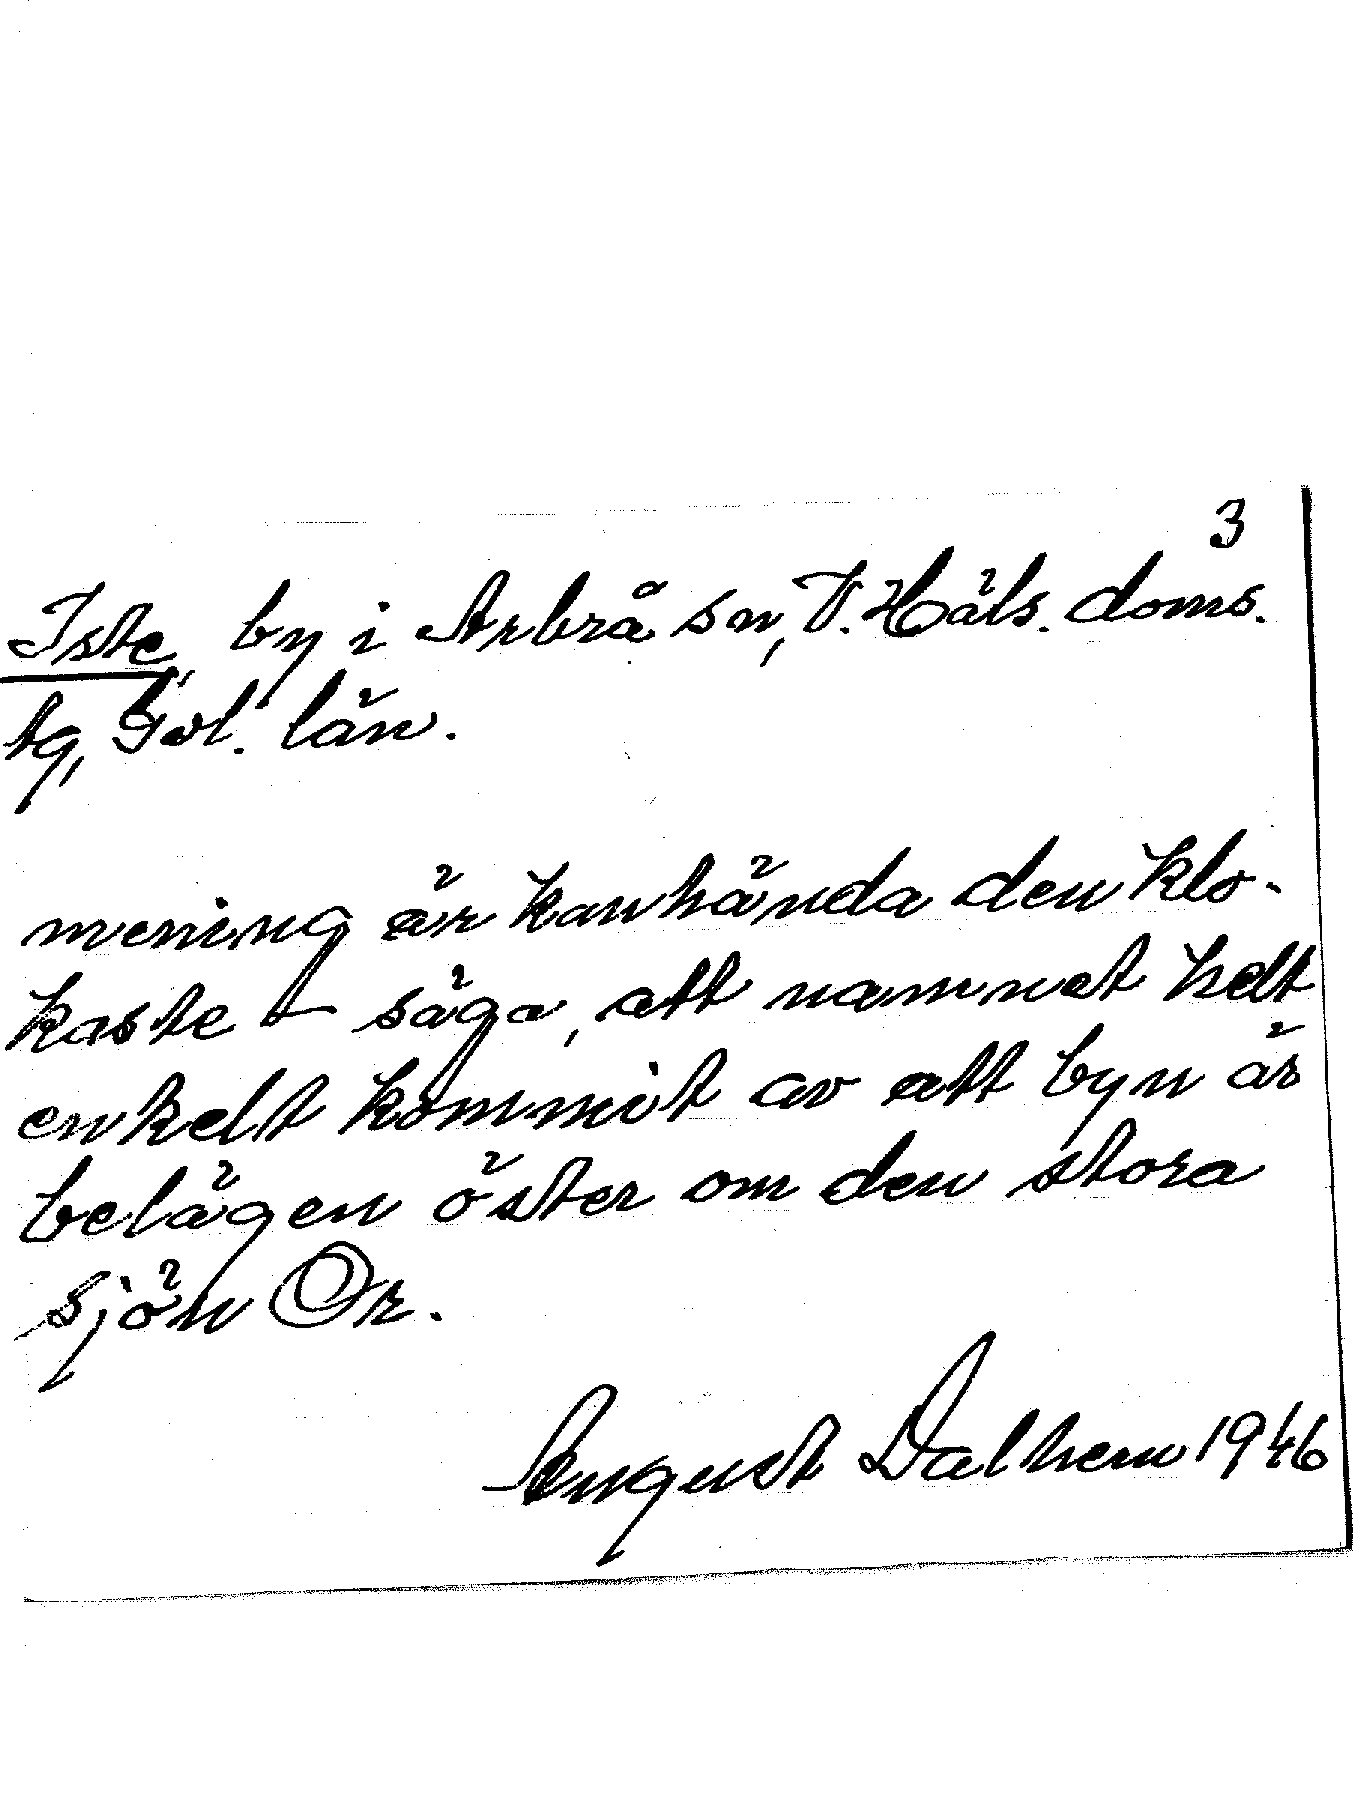 3
Iste, by i Arbrå sn, V. Häls. doms.
tg, Gvl. län.
mening är kanhända den klo-
kaste – säga, att namnet helt
enkelt kommit av att byn är
belägen öster om den stora
sjön Or.
August Dalhem 1946